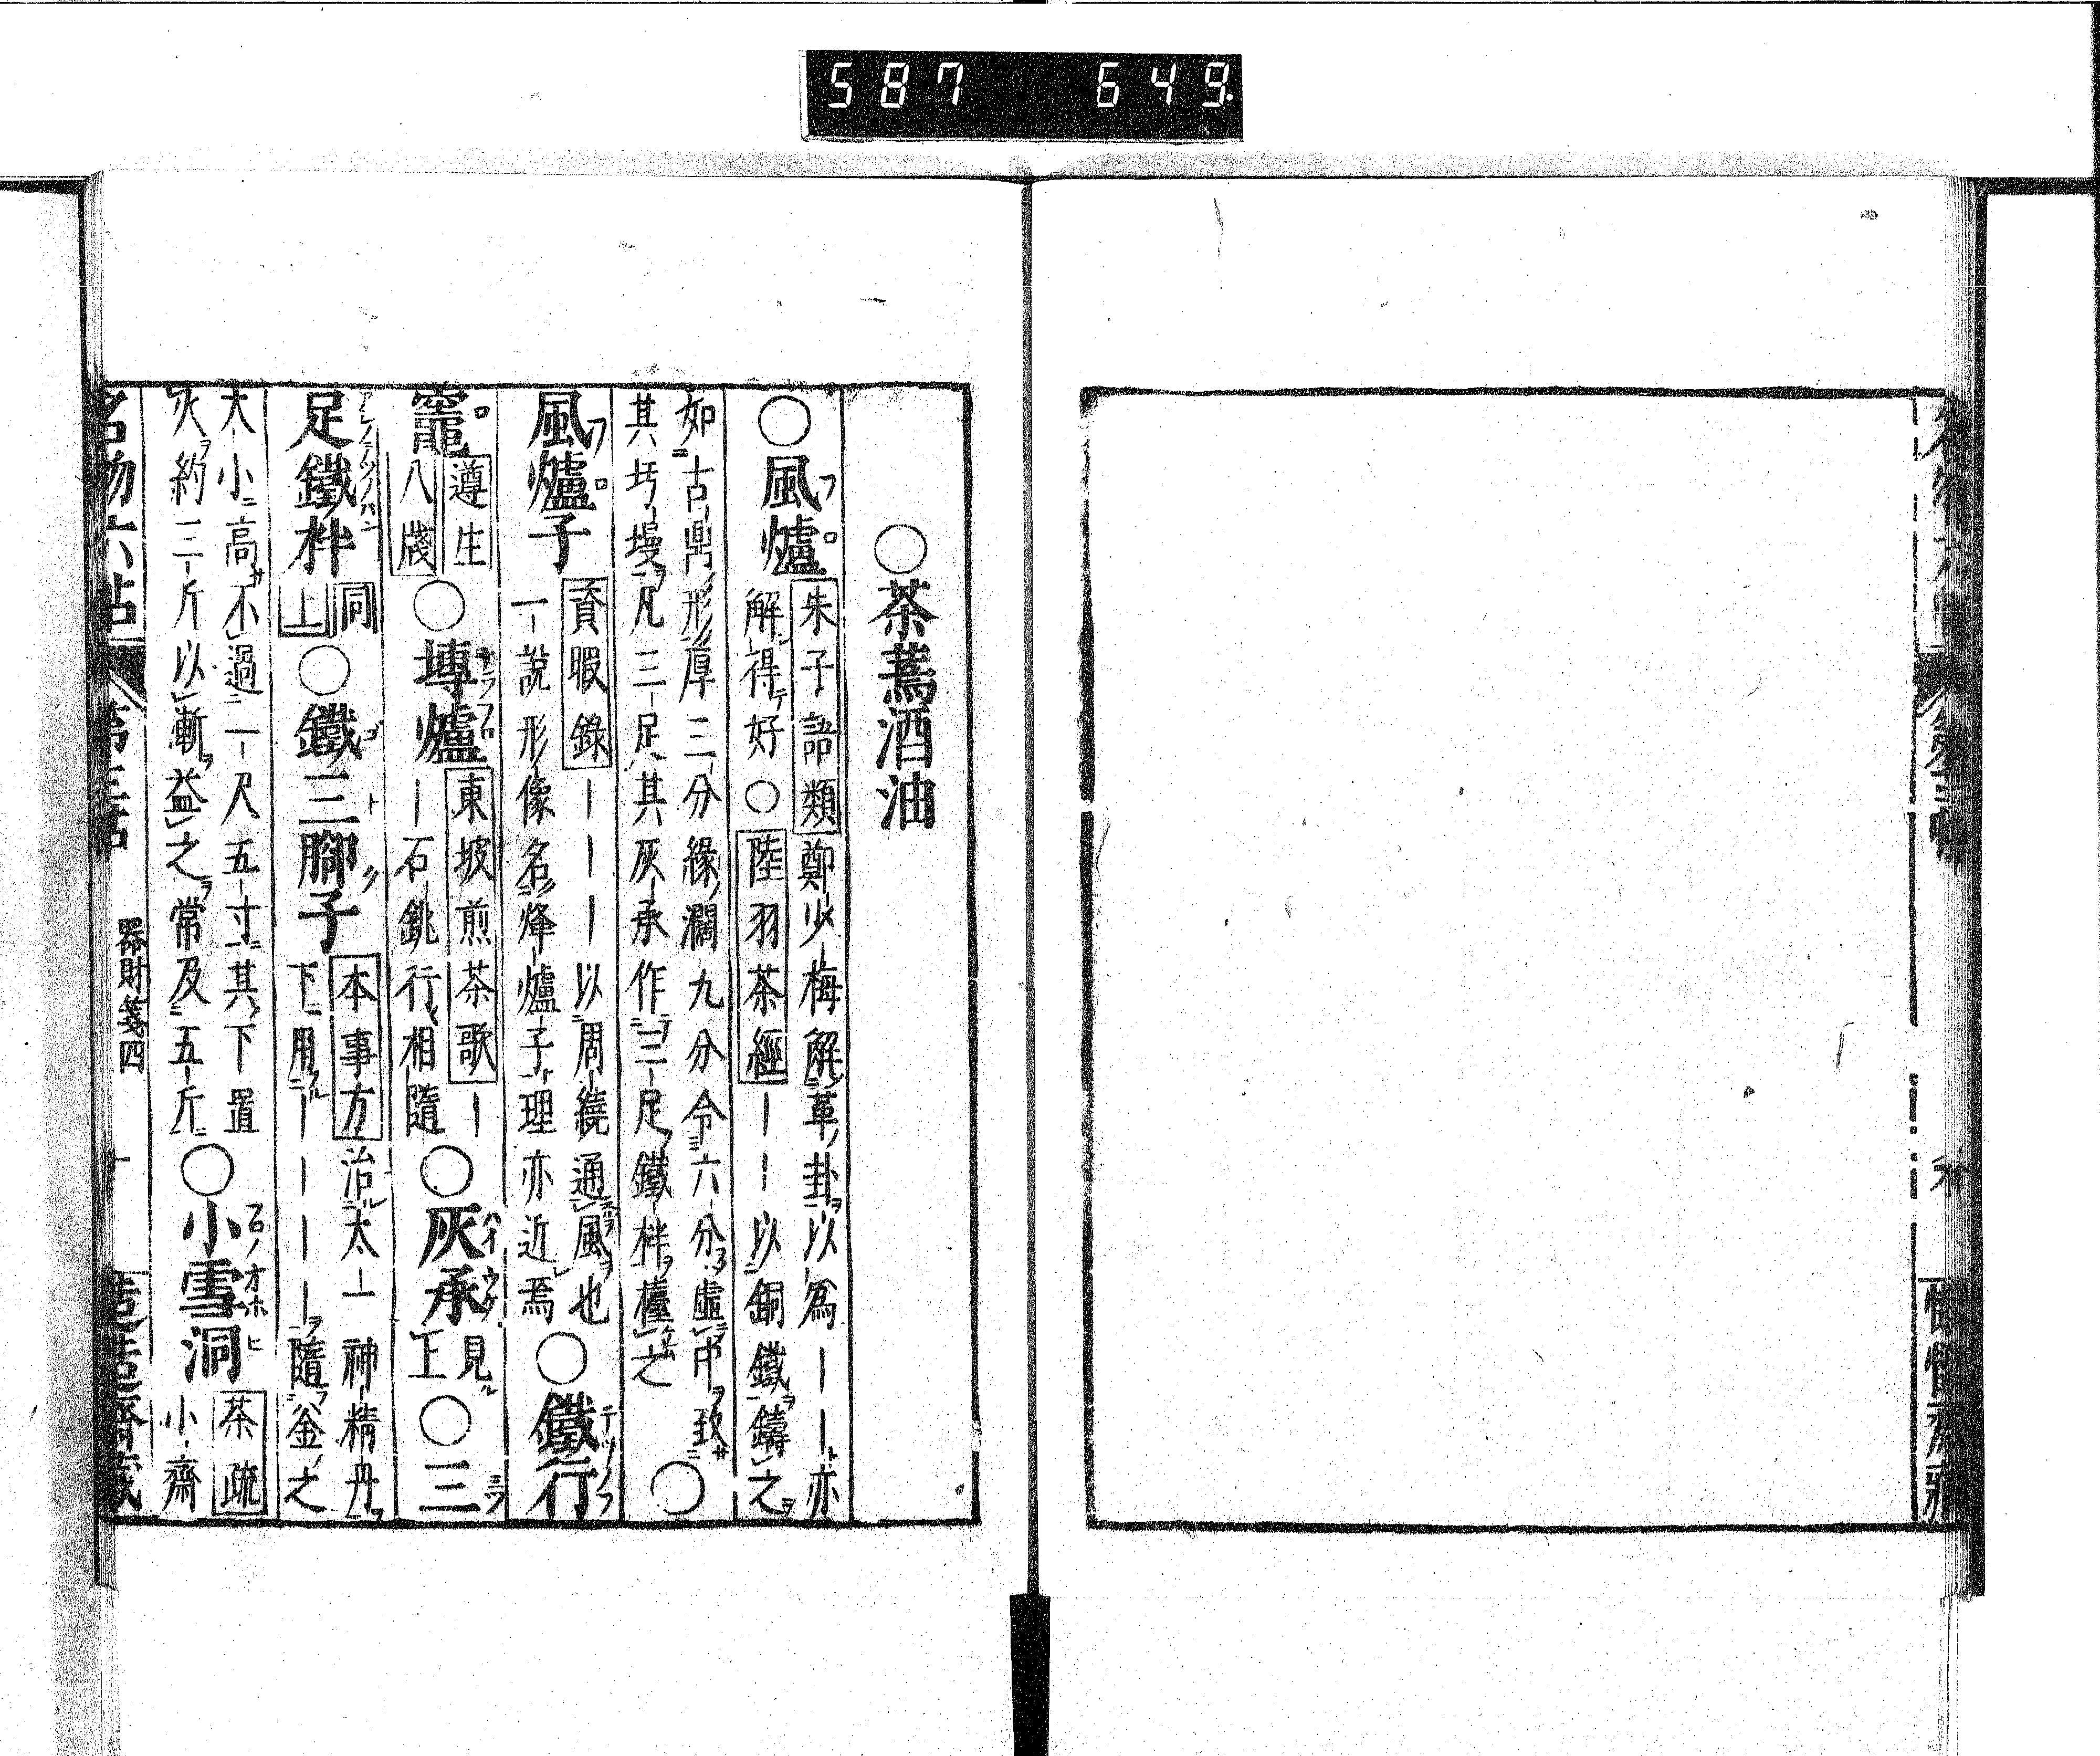 587 649
○茶蔫酒油
○風爐 朱子語類 鄭少梅解革卦以為｜｜亦
解得好○陸羽茶經｜｜以銅鐵鑄之
如古鼎形厚三分緣濶九分令六分虛中致
其圬墁凡三足其灰承作三足鐵柈檯之 ○
風爐子 資暇錄｜｜｜以周繞通風也
一說形像名烽爐子理亦近焉 ○鐵行
竈 遵生
八牋 ○塼爐 東坡煎茶歌｜
｜石銚行相隨 ○灰承 見
上 ○三
足鐵柈 同
上 ○鐵三腳子 本事方 治太一神精丹
下用｜｜｜｜隨釜之
大小高不過一尺五寸其下置
火約三斤以漸益之常及五斤 ○小雪洞 茶疏
小齋
名物六帖 第三帖 器財箋四